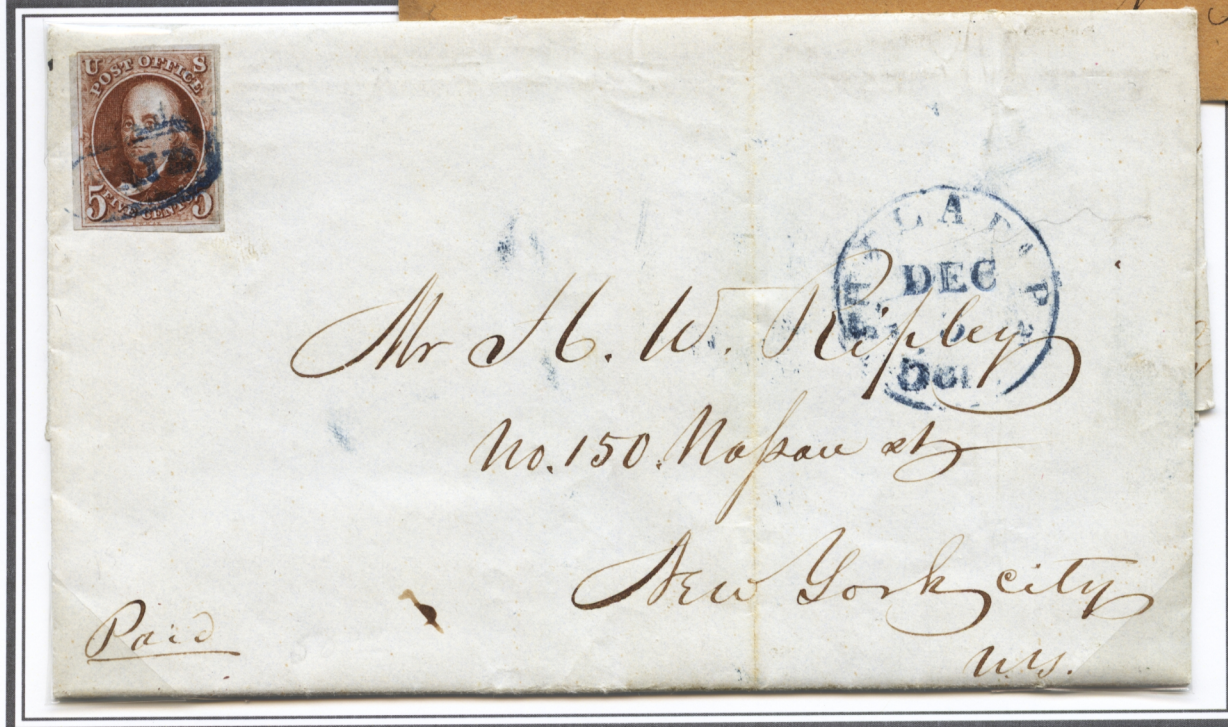 U S
POST OFFICE
5 FIVE CENTS 5
PHILADA Pa
DEC
5cts
Mr H. W. Ripley
No. 150. Nassau st
New York city
N.Y.
Paid